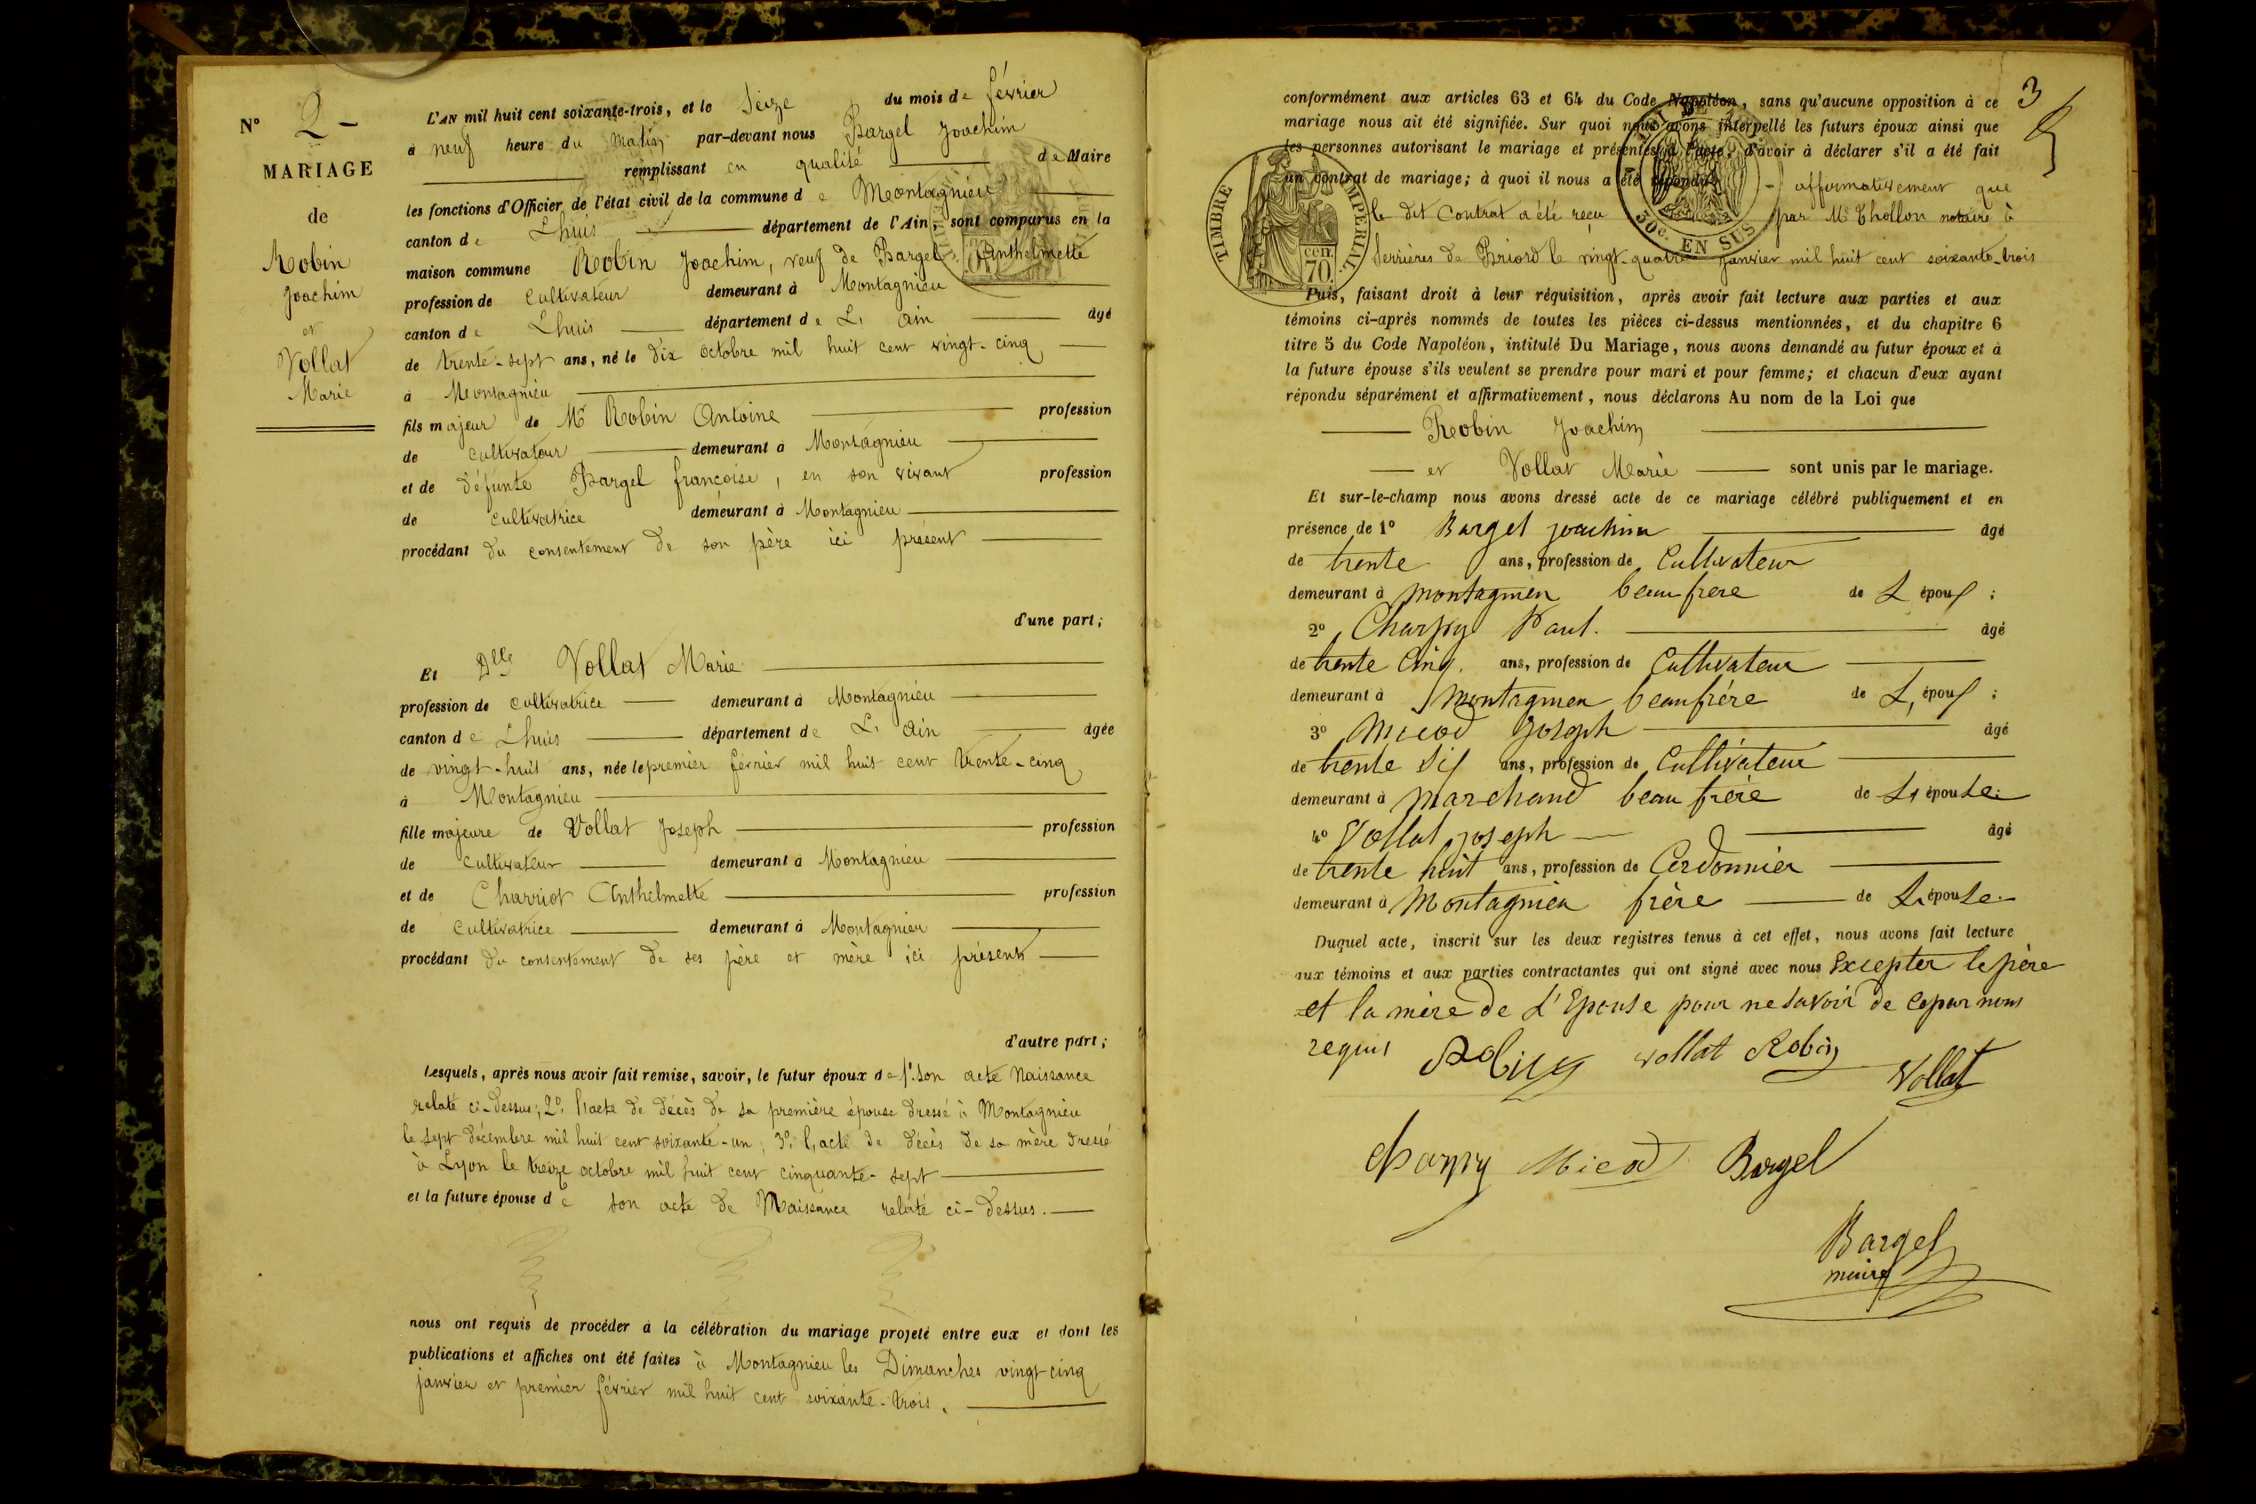 N° 2 -
MARIAGE
de
Robin
Joachim
et
Vollat
Marie
L'AN mil huit cent soixante-trois, et le Seize du mois de février
à neuf heure du matin par-devant nous Bargel Joachim
remplissant en qualité de Maire
les fonctions d'Officier de l'état civil de la commune de Montagnieu
canton de Lhuis département de l'Ain, sont comparus en la
maison commune Robin Joachim, veuf de Bargel Anthelmette
profession de Cultivateur demeurant à Montagnieu
canton de Lhuis département de L'Ain âgé
de trente-sept ans, né le dix octobre mil huit cent vingt-cinq
à Montagnieu
fils majeur de Mr Robin Antoine profession
de cultivateur demeurant à Montagnieu
et de défunte Bargel françoise, en son vivant profession
de cultivatrice demeurant à Montagnieu
procédant du consentement de son père ici présent
d'une part;
Et Dlle Vollat Marie
profession de cultivatrice demeurant à Montagnieu
canton de Lhuis département de L'Ain âgée
de vingt-huit ans, née le premier février mil huit cent trente-cinq
à Montagnieu
fille majeure de Vollat Joseph profession
de cultivateur demeurant à Montagnieu
et de Charriot Anthelmette profession
de cultivatrice demeurant à Montagnieu
procédant du consentement de ses père et mère ici présents
d'autre part;
Lesquels, après nous avoir fait remise, savoir, le futur époux de 1° son acte Naissance
relaté ci-dessus; 2° l'acte de décès de sa première épouse dressé à Montagnieu
le sept décembre mil huit cent soixante-un; 3° l'acte de décès de sa mère dressé
à Lyon le treize octobre mil huit cent cinquante-sept
et la future épouse de son acte de Naissance relaté ci-dessus.
nous ont requis de procéder à la célébration du mariage projeté entre eux et dont les
publications et affiches ont été faites à Montagnieu les Dimanches vingt cinq
janvier et premier février mil huit cent soixante-trois.
3
conformément aux articles 63 et 64 du Code Napoléon, sans qu'aucune opposition à ce
mariage nous ait été signifiée. Sur quoi nous avons interpellé les futurs époux ainsi que
les personnes autorisant le mariage et présentes à l'acte, d'avoir à déclarer s'il a été fait
un contrat de mariage; à quoi il nous a été répondu affirmativement que
le dit Contrat a été reçu par Me Thollon notaire à
Serrières de Briord le vingt-quatre janvier mil huit cent soixante-trois
TIMBRE IMPERIAL.
cen. 70.
50c. EN SUS
Puis, faisant droit à leur réquisition, après avoir fait lecture aux parties et aux
témoins ci-après nommés de toutes les pièces ci-dessus mentionnées, et du chapitre 6
titre 5 du Code Napoléon, intitulé Du Mariage, nous avons demandé au futur époux et à
la future épouse s'ils veulent se prendre pour mari et pour femme; et chacun d'eux ayant
répondu séparément et affirmativement, nous déclarons Au nom de la Loi que
Robin Joachim
et Vollat Marie sont unis par le mariage.
Et sur-le-champ nous avons dressé acte de ce mariage célébré publiquement et en
présence de 1° Bargel joachim âgé
de trente ans, profession de Cultivateur
demeurant à montagnieu beaufrere de L époux;
2° Charpy Paul. âgé
de trente cinq. ans, profession de Cultivateur
demeurant à montagnieu beaufrére de L, époux;
3° Micod Joseph âgé
de trente six ans, profession de Cultivateur
demeurant à marchand beau frère de L, épouse.
4° Vollat joseph âgé
de trente huit ans, profession de Cordonnier
demeurant à Montagnieu frère de L, épouse.
Duquel acte, inscrit sur les deux registres tenus à cet effet, nous avons fait lecture
aux témoins et aux parties contractantes qui ont signé avec nous Excepter le père
et la mère de L'Epouse pour ne savoir de ce par nous
requis Robin vollat Robin Vollat
charpy Micod Bargel
Bargel
maire